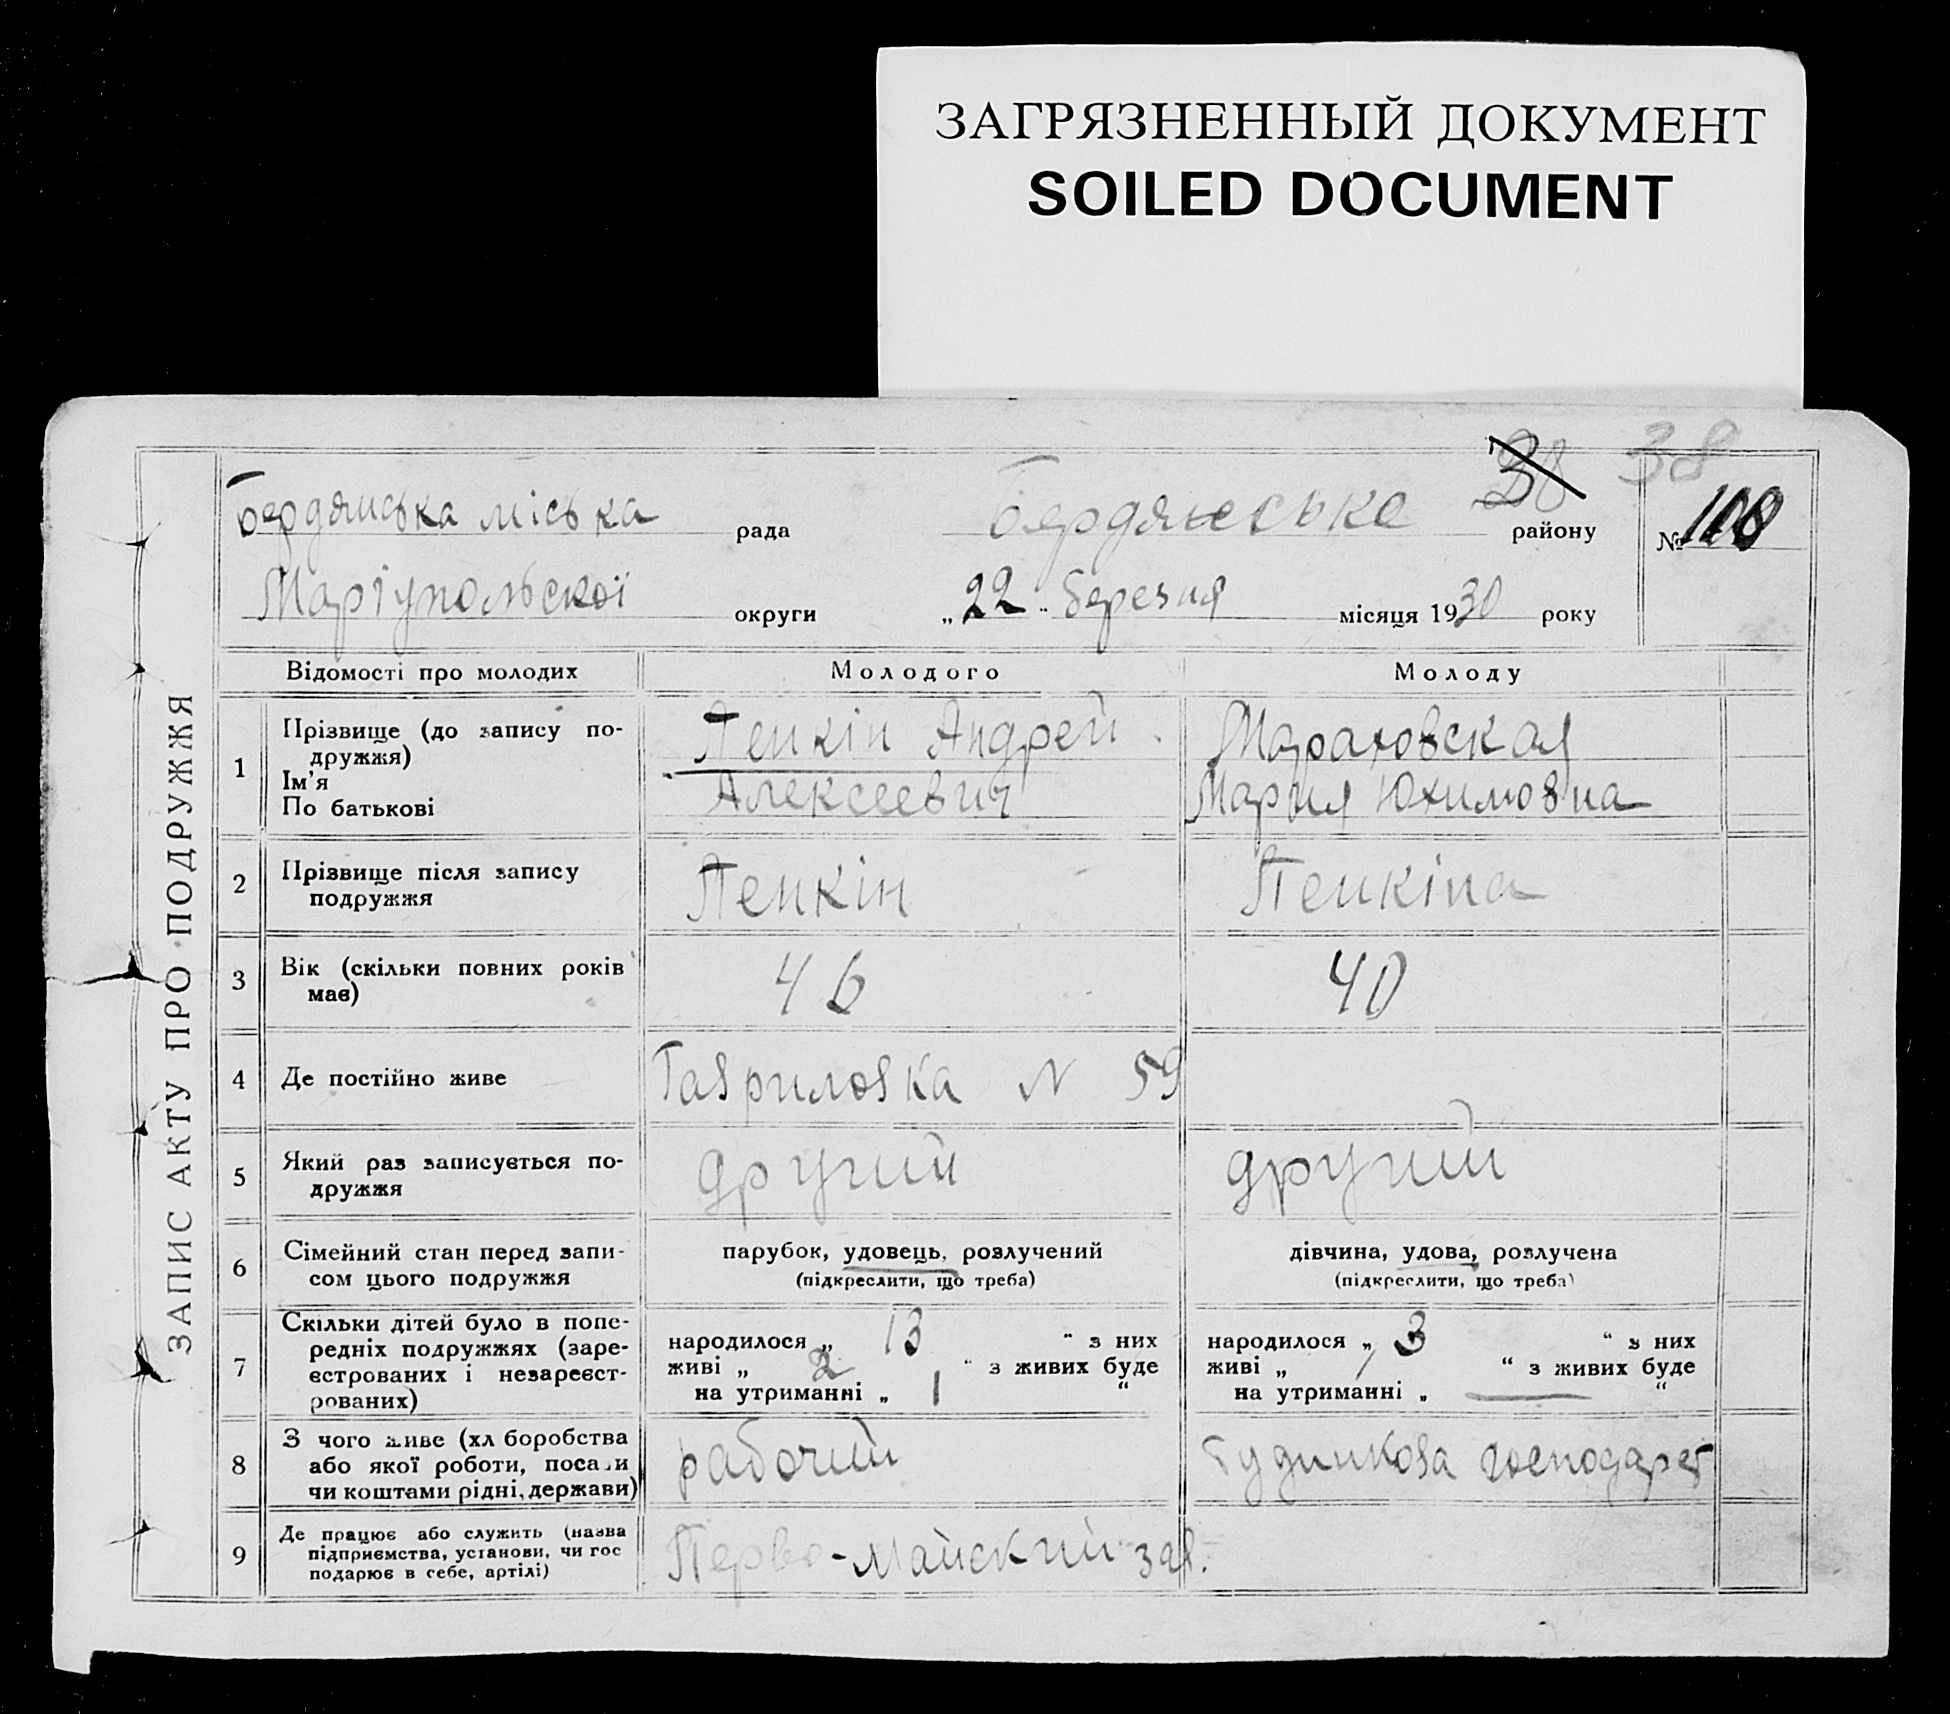 ЗАГРЯЗНЕННЫЙ ДОКУМЕНТ
SOILED DOCUMENT
38 38
Бердянська міська рада Бердянсько району № 100
Маріупольскої округи „22" березня місяця 1930 року
ЗАПИС АКТУ ПРО ПОДРУЖЖЯ
Відомості про молодих Молодого Молоду
1 Прізвище (до запису по-
дружжя)
Ім'я
По батькові
Пенкін Андрей
Алексеевич
Мараховская
Мария Юхимовна
2 Прізвище після запису
подружжя
Пенкін
Пенкіна
3 Вік (скільки повних років
має)
46
40
4 Де постійно живе
Гавриловка N 59
5 Який раз записується по-
дружжя
другий
другий
6 Сімейний стан перед запи-
сом цього подружжя
парубок, удовець, розлучений
(підкреслити, що треба)
дівчина, удова, розлучена
(підкреслити, що треба)
7 Скільки дітей було в попе-
редніх подружжях (заре-
єстрованих і незареєст-
рованих)
народилося „ 13 " з них
живі „ 2 " з живих буде
на утриманні „ 1 "
народилося „ 3 " з них
живі „ " з живих буде
на утриманні „ — "
8 З чого живе (хл боробства
або якої роботи, посади
чи коштами рідні, держави)
рабочий
Будинкова господарст
9 Де працює або служить (назва
підприємства, установи, чи гос
подарює в себе, артілі)
Перво-Майский зав.